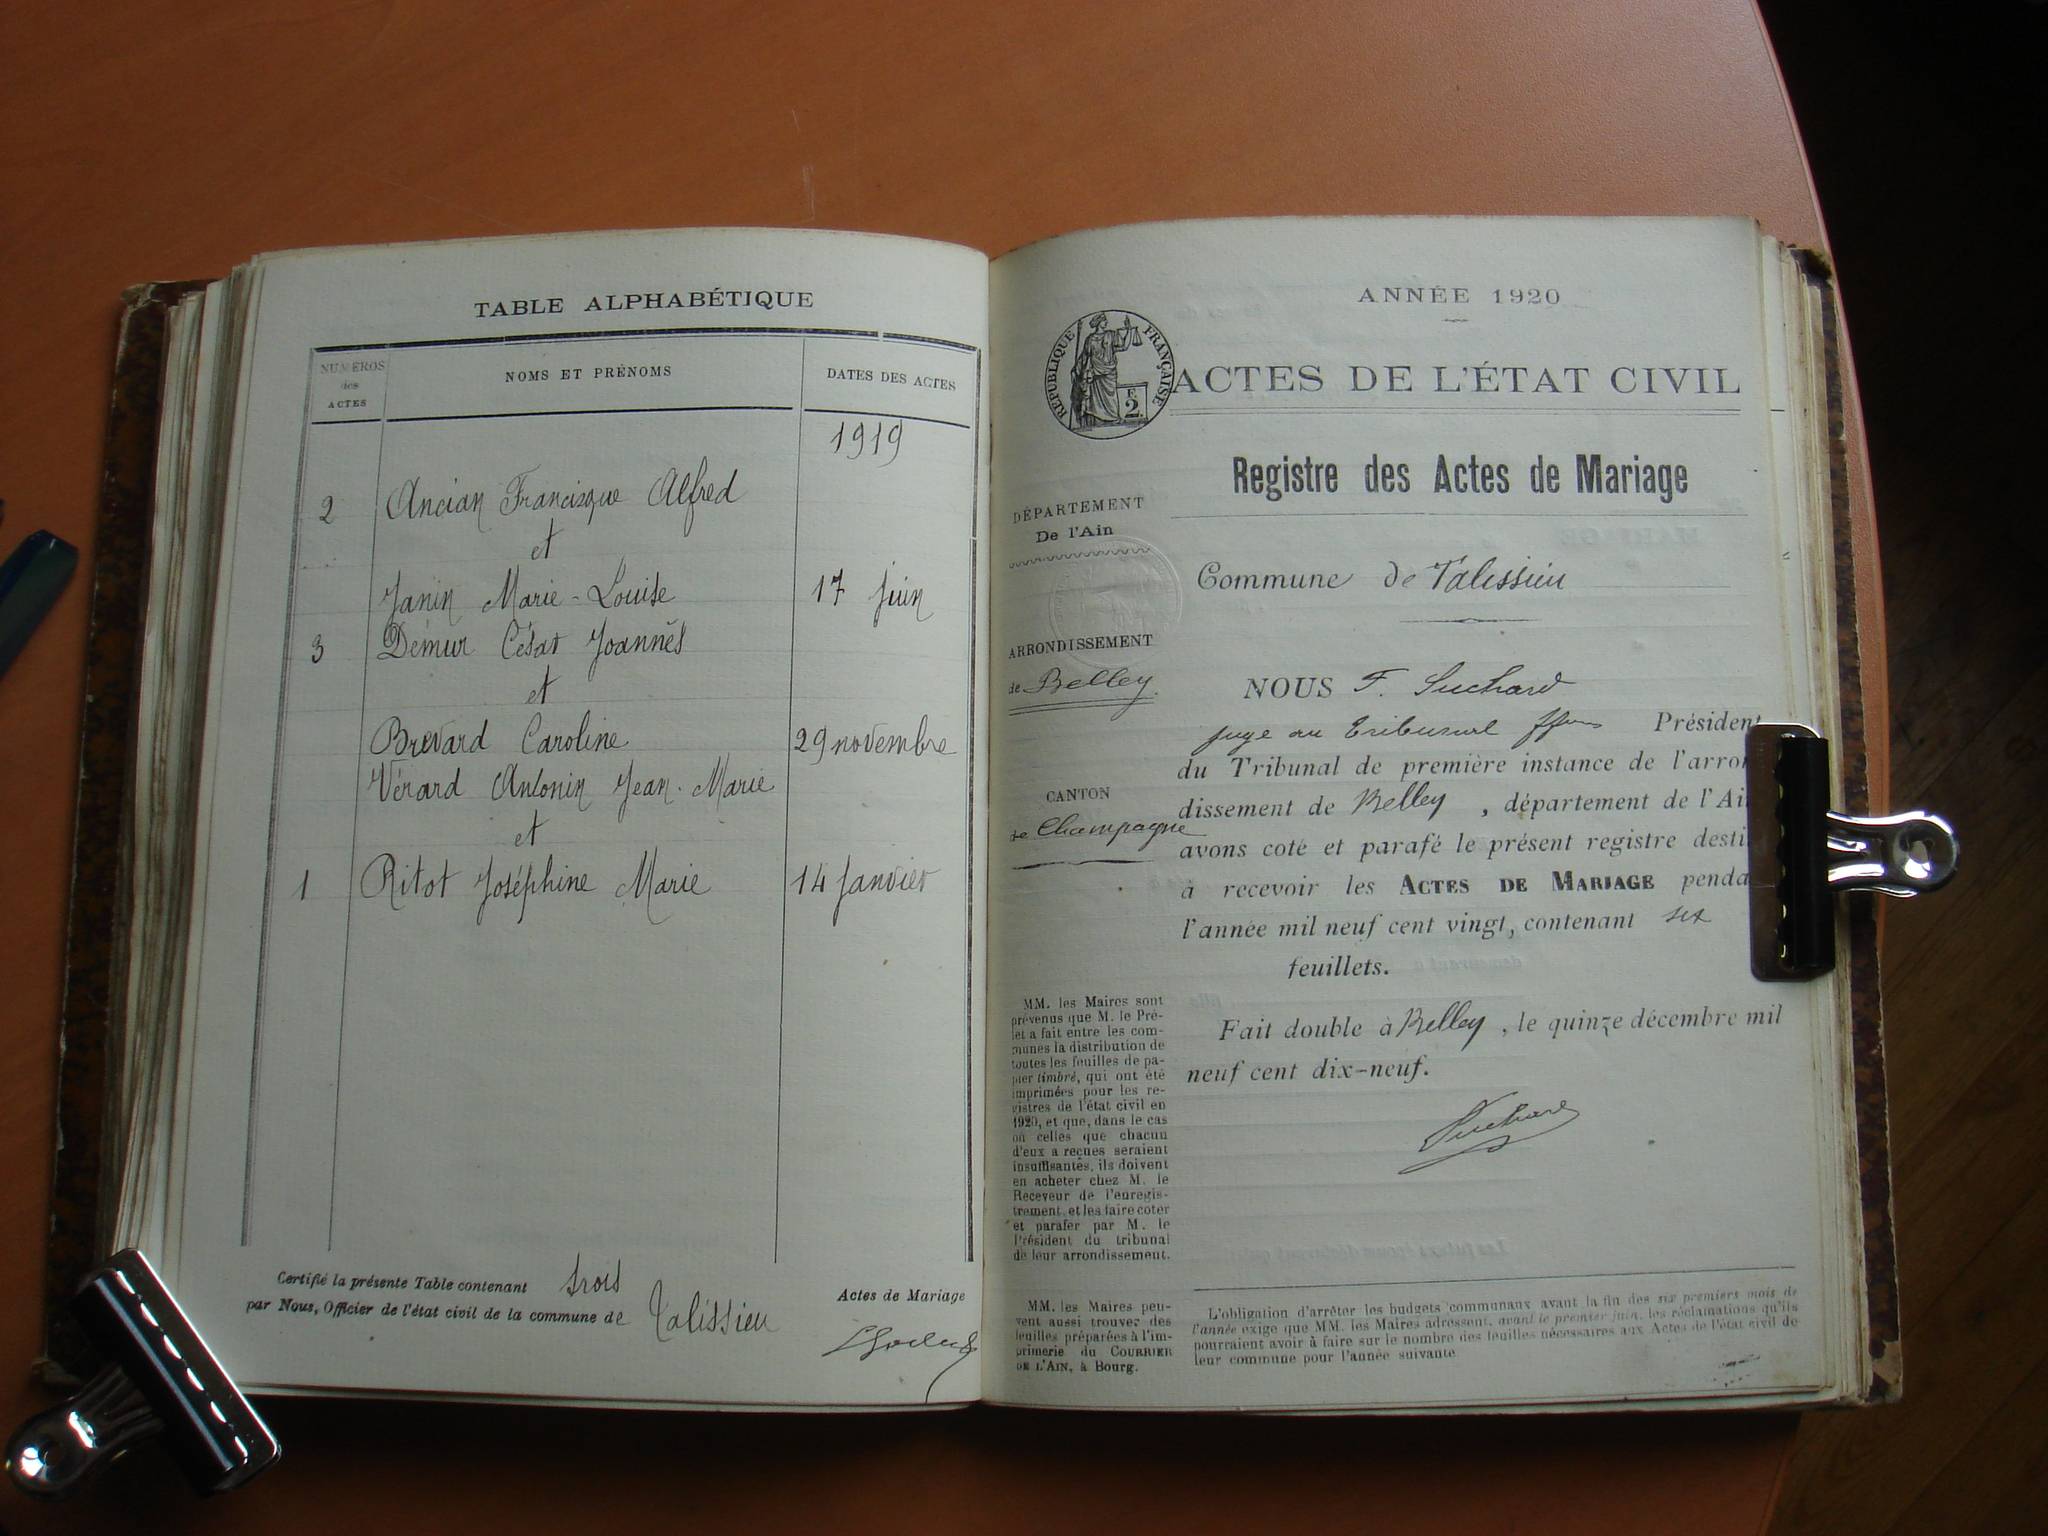 TABLE ALPHABÉTIQUE
NUMÉROS
des
ACTES
NOMS ET PRÉNOMS
DATES DES ACTES
1919
2 Ancian Francisque Alfred
et
Janin Marie-Louise 17 juin
3 Démur César Joannès
et
Brevard Caroline 29 novembre
Vérard Antonin Jean-Marie
et
1 Ritot Joséphine Marie 14 janvier
Certifié la présente Table contenant trois Actes de Mariage
par Nous, Officier de l'état civil de la commune de Talissieu
ANNÉE 1920
RÉPUBLIQUE FRANÇAISE
2 F.
ACTES DE L'ÉTAT CIVIL
Registre des Actes de Mariage
DÉPARTEMENT
De l'Ain
ARRONDISSEMENT
de Belley
CANTON
de Champagne
MM. les Maires sont
prévenus que M. le Pré-
fet a fait entre les com-
munes la distribution de
toutes les feuilles de pa-
pier timbré, qui ont été
imprimées pour les re-
gistres de l'état civil en
1920, et que, dans le cas
où celles que chacun
d'eux a reçues seraient
insuffisantes, ils doivent
en acheter chez M. le
Receveur de l'enregis-
trement, et les faire coter
et parafer par M. le
Président du tribunal
de leur arrondissement.
MM. les Maires peu-
vent aussi trouver des
feuilles préparées à l'im-
primerie du COURRIER
DE L'AIN, à Bourg.
Commune de Talissieu
NOUS F. Suchard
juge au Tribunal ffons Président
du Tribunal de première instance de l'arron
dissement de Belley, département de l'Ai
avons coté et parafé le présent registre desti
à recevoir les ACTES DE MARIAGE penda
l'année mil neuf cent vingt, contenant six
feuillets.
Fait double à Belley, le quinze décembre mil
neuf cent dix-neuf.
Suchard
L'obligation d'arrêter les budgets communaux avant la fin des six premiers mois de
l'année exige que MM. les Maires adressent, avant le premier juin, les réclamations qu'ils
pourraient avoir à faire sur le nombre des feuilles nécessaires aux Actes de l'état civil de
leur commune pour l'année suivante